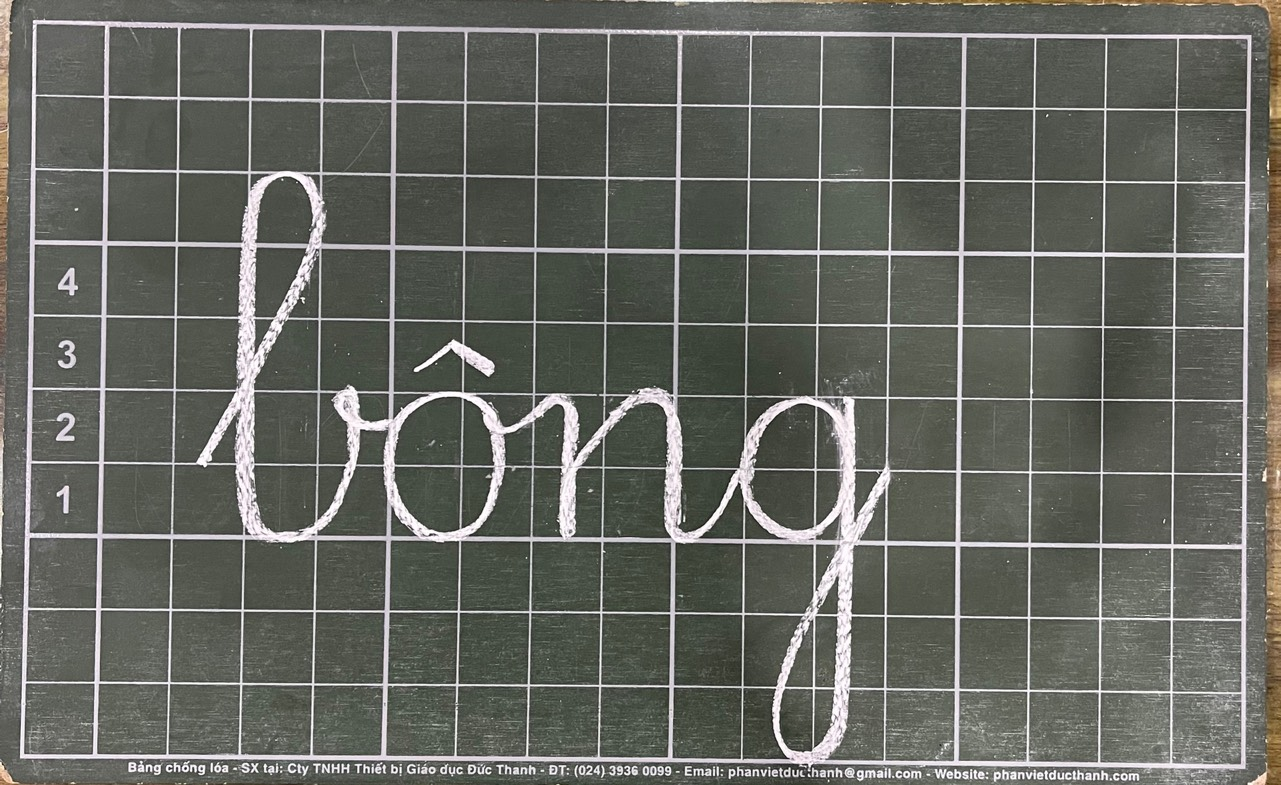 4
3
2
1
bông
Bảng chống lóa - SX tại: Cty TNHH Thiết bị Giáo dục Đức Thanh - ĐT: (024) 3936 0099 - Email: phanvietducthanh@gmail.com - Website: phanvietducthanh.com